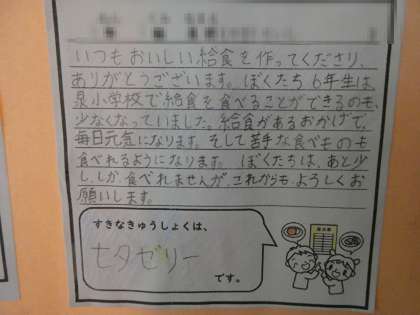 いつもおいしい給食を作ってくださり、
ありがとうございます。ぼくたち6年生は、
泉小学校で給食を食べることができるのも、
少なくなっていました。給食があるおかげで、
毎日元気になります。そして苦手な食べものも
食べれるようになります。ぼくたちは、あと少
ししか食べれませんが、これからも、よろしくお
願いします。
すきなきゅうしょくは、
七夕ゼリー
です。